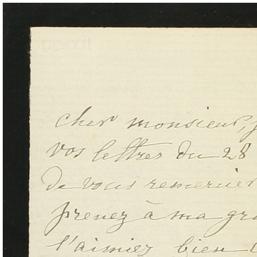 cher monsieur,
vos lettres du 28
de vous remercier
prenez à ma
l'aimiez bien